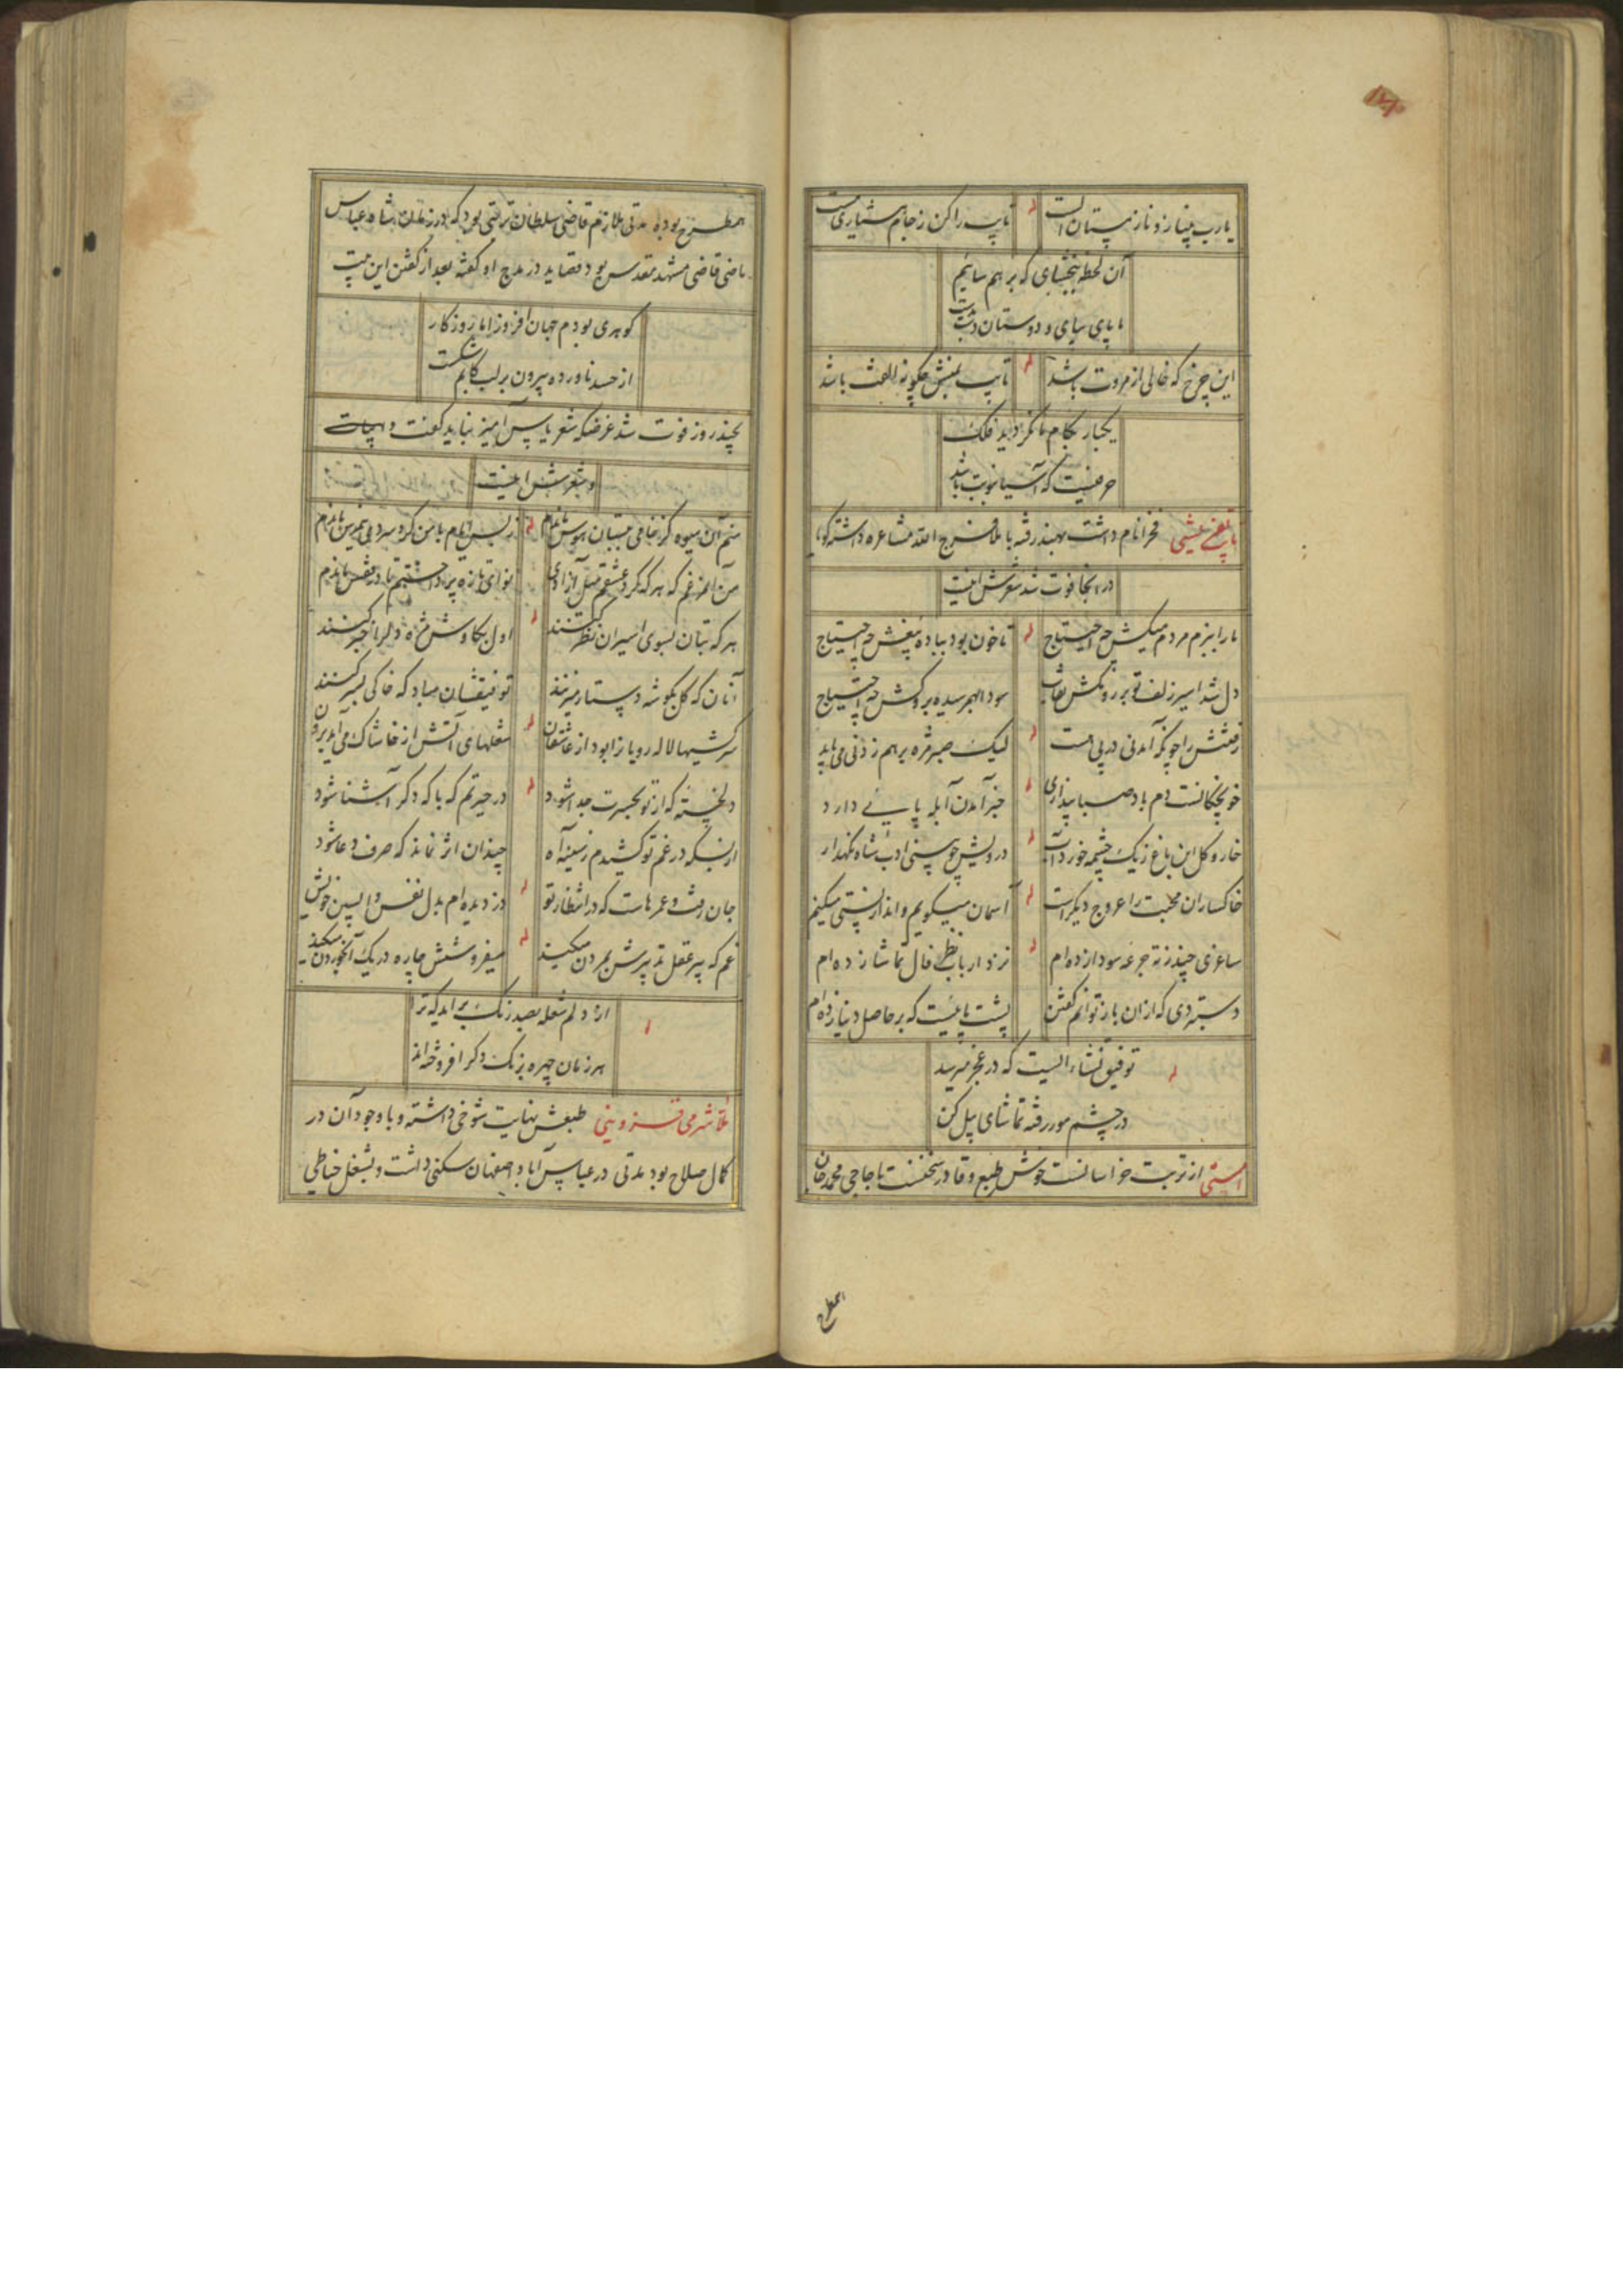 یارب بنیاز و ناز مستان الست
تایب را کن ز جام هشیاری مست
آن لحظه ببخشای که بر هم سائیم
ما پای بپای و دوستان دست بدست
این چرخ که خالی از مروت باشد
تایب بمنش چگونه الفت باشد
یکبار بکام ما نگردید فلک
حرفیست که آسیا بنوبت باشد
فخرا نام داشت بهند رفته با ملا فرج الله مشاعره داشته گویا
در آنجا فوت شد شعرش اینست
ما را ببزم مردم میکش چه احتیاج
تا خون بود بباده بیغش چه احتیاج
دل شد اسیر زلف تو بر رو مکش نقاب
سودا بهم رسیده بروکش چه احتیاج
رفتنش را چونکه آمدنی در پی هست
لیک صبر مژه بر هم زدنی می باید
خبر آمدن آبله پایی دارد
خار و گل این باغ ز یک چشمه خورد آب
درویش چو بینی ادب شاه نگهدار
خاکساران محبت را عروج دیگر است
آسمان میگویم و انداز پستی میکنم
ساغری چند ز ته جرعه سودا زده ام
نزد ارباب نظر فال تماشا زده ام
دست ردی که ازان باز توانم گفتن
پشت پائیست که بر حاصل دنیا زده ام
توفیق نشاء ایست که در عجز میرسد
در چشم مور رفته تماشای پیل کن
از تربت خراسانست خوش طبع و قادر سخنست با حاجی محمد خان
همطرح
همطرح بوده مدتی ملازم قاضی سلطان تربتی بود که در زمان شاه عباس
ماضی قاضی مشهد مقدس بود قصاید در مدح او گفته بعد از گفتن این بیت
گوهری بودم جهان افروز اما روزگار
از حسد ناورده بیرون بر لب کانم شکست
بچند روز فوت شد غرضکه شعر یاس آمیز نباید گفت
و شعرش اینست
منم آن میوه کز خامی ببستان هوس ماندم
ز بس ایام با من کرد سردی نیم رس ماندم
من آن مرغم که هر که کرد عشقم میل آزادی
نوای تازه پرداختم تا در قفس ماندم
هر گه بتان بسوی اسیران نظر کنند
اول بکاوش مژه دلرا خبر کنند
آنان که گل بگوشه دستار میزنند
توفیقشان مباد که خاکی بسر کنند
سرکشیها لاله رویانرا بود از عاشقان
شعلهای آتش از خاشاک می آید برون
دلخسته که از تو بحسرت جدا شود
در حیرتم که با که دگر آشنا شود
از بسکه در غم تو کشیدم ز سینه آه
چندان اثر نماند که صرف دعا شود
جان رفت و عمرهاست که در انتظار تو
دزدیده ام بدل نفس واپسین خویش
غم که پیر عقل تدبیرش بمردن میکند
میفروشش چاره در یک آب خوردن میکند
از دلم شعله بصد رنگ برآید که تو
هر زمان چهره برنگ دگر افروخته‌اند
ملا شرمی قزوینی طبعش نهایت شوخی داشته و با وجود آن در
کمال صلاح بود مدتی در عباس آباد اصفهان سکنی داشت و بشغل خیاطی